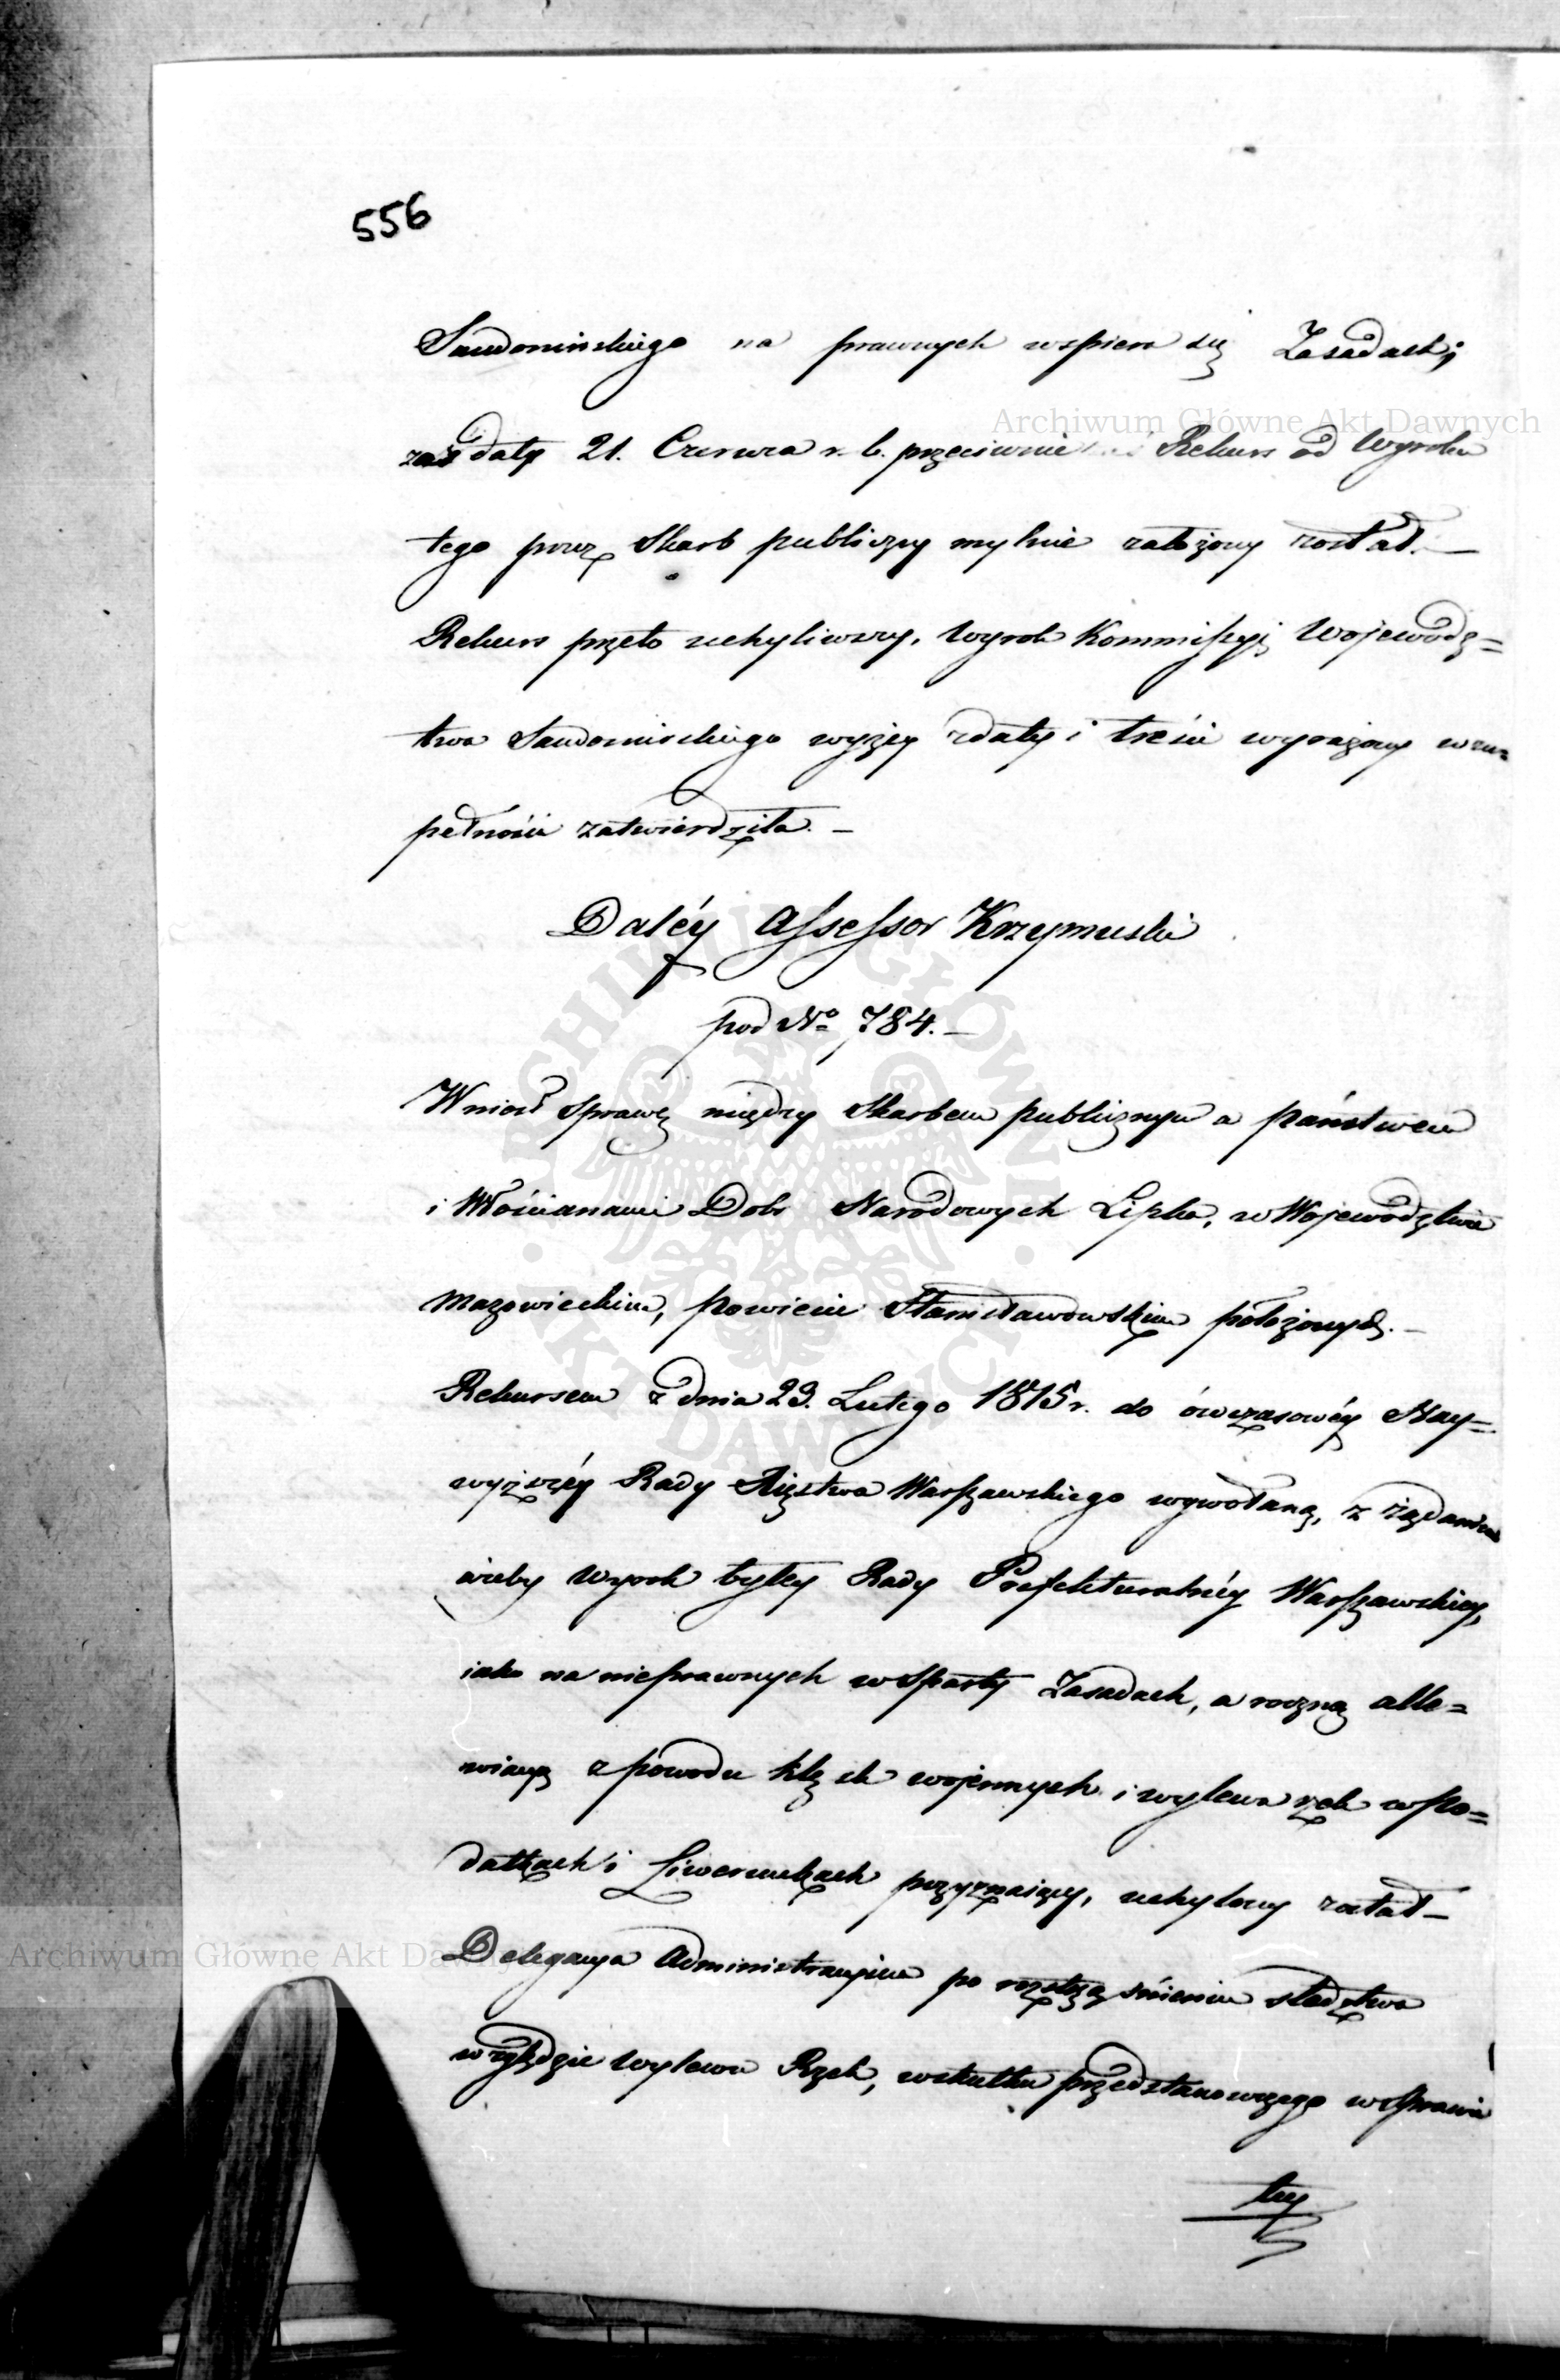 556
Sandomirskiego na prawnych wspiera się Zasadach;
zaś daty 21. Czerwca r. b. przeciwnie Rekurs od Wyroku
tego przez Skarb publiczny mylnie założony został. —
Rekurs przeto uchyliwszy, Wyrok Kommissyi Wojewodz=
twa Sandomirskiego wyżey z daty i treści wyrażony w zu=
pełności zatwierdziła. —
Daléy Assessor Krzymuski
pod No 784. —
Wniosł Sprawę między Skarbem publicznym a państwem
i Włościanami Dobr Narodowych Lipka, w Wojewodztwie
Mazowieckim, powiecie Stanisławowskim położonych. —
Rekursem z dnia 23. Lutego 1815 r. do ówczasowéy Nay=
wyższéy Rady Xięstwa Warszawskiego wywołaną, z żądaniem
ażeby Wyrok byłey Rady Prefekturalnéy Warszawskiey,
iako na nieprawnych wsparty Zasadach, a roczną alle=
wiacyą z powodu klęsk wojennych i wylewu rzek w po=
datkach i Liwerunkach przyznaiący, uchylony został —
Delegacya Administracyina po roztrząśnieniu sledztwa
względzie wylewu Rzek, wskutku przedstanowczego w sprawie
tey
Archiwum Główne Akt Dawnych
Archiwum Główne Akt Dawnych
ARCHIWUM GŁÓWNE
AKT DAWNYCH